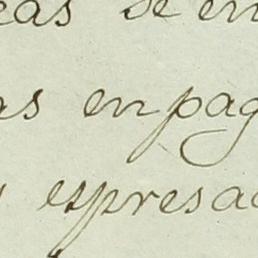 eas de en
as en pag
espresad